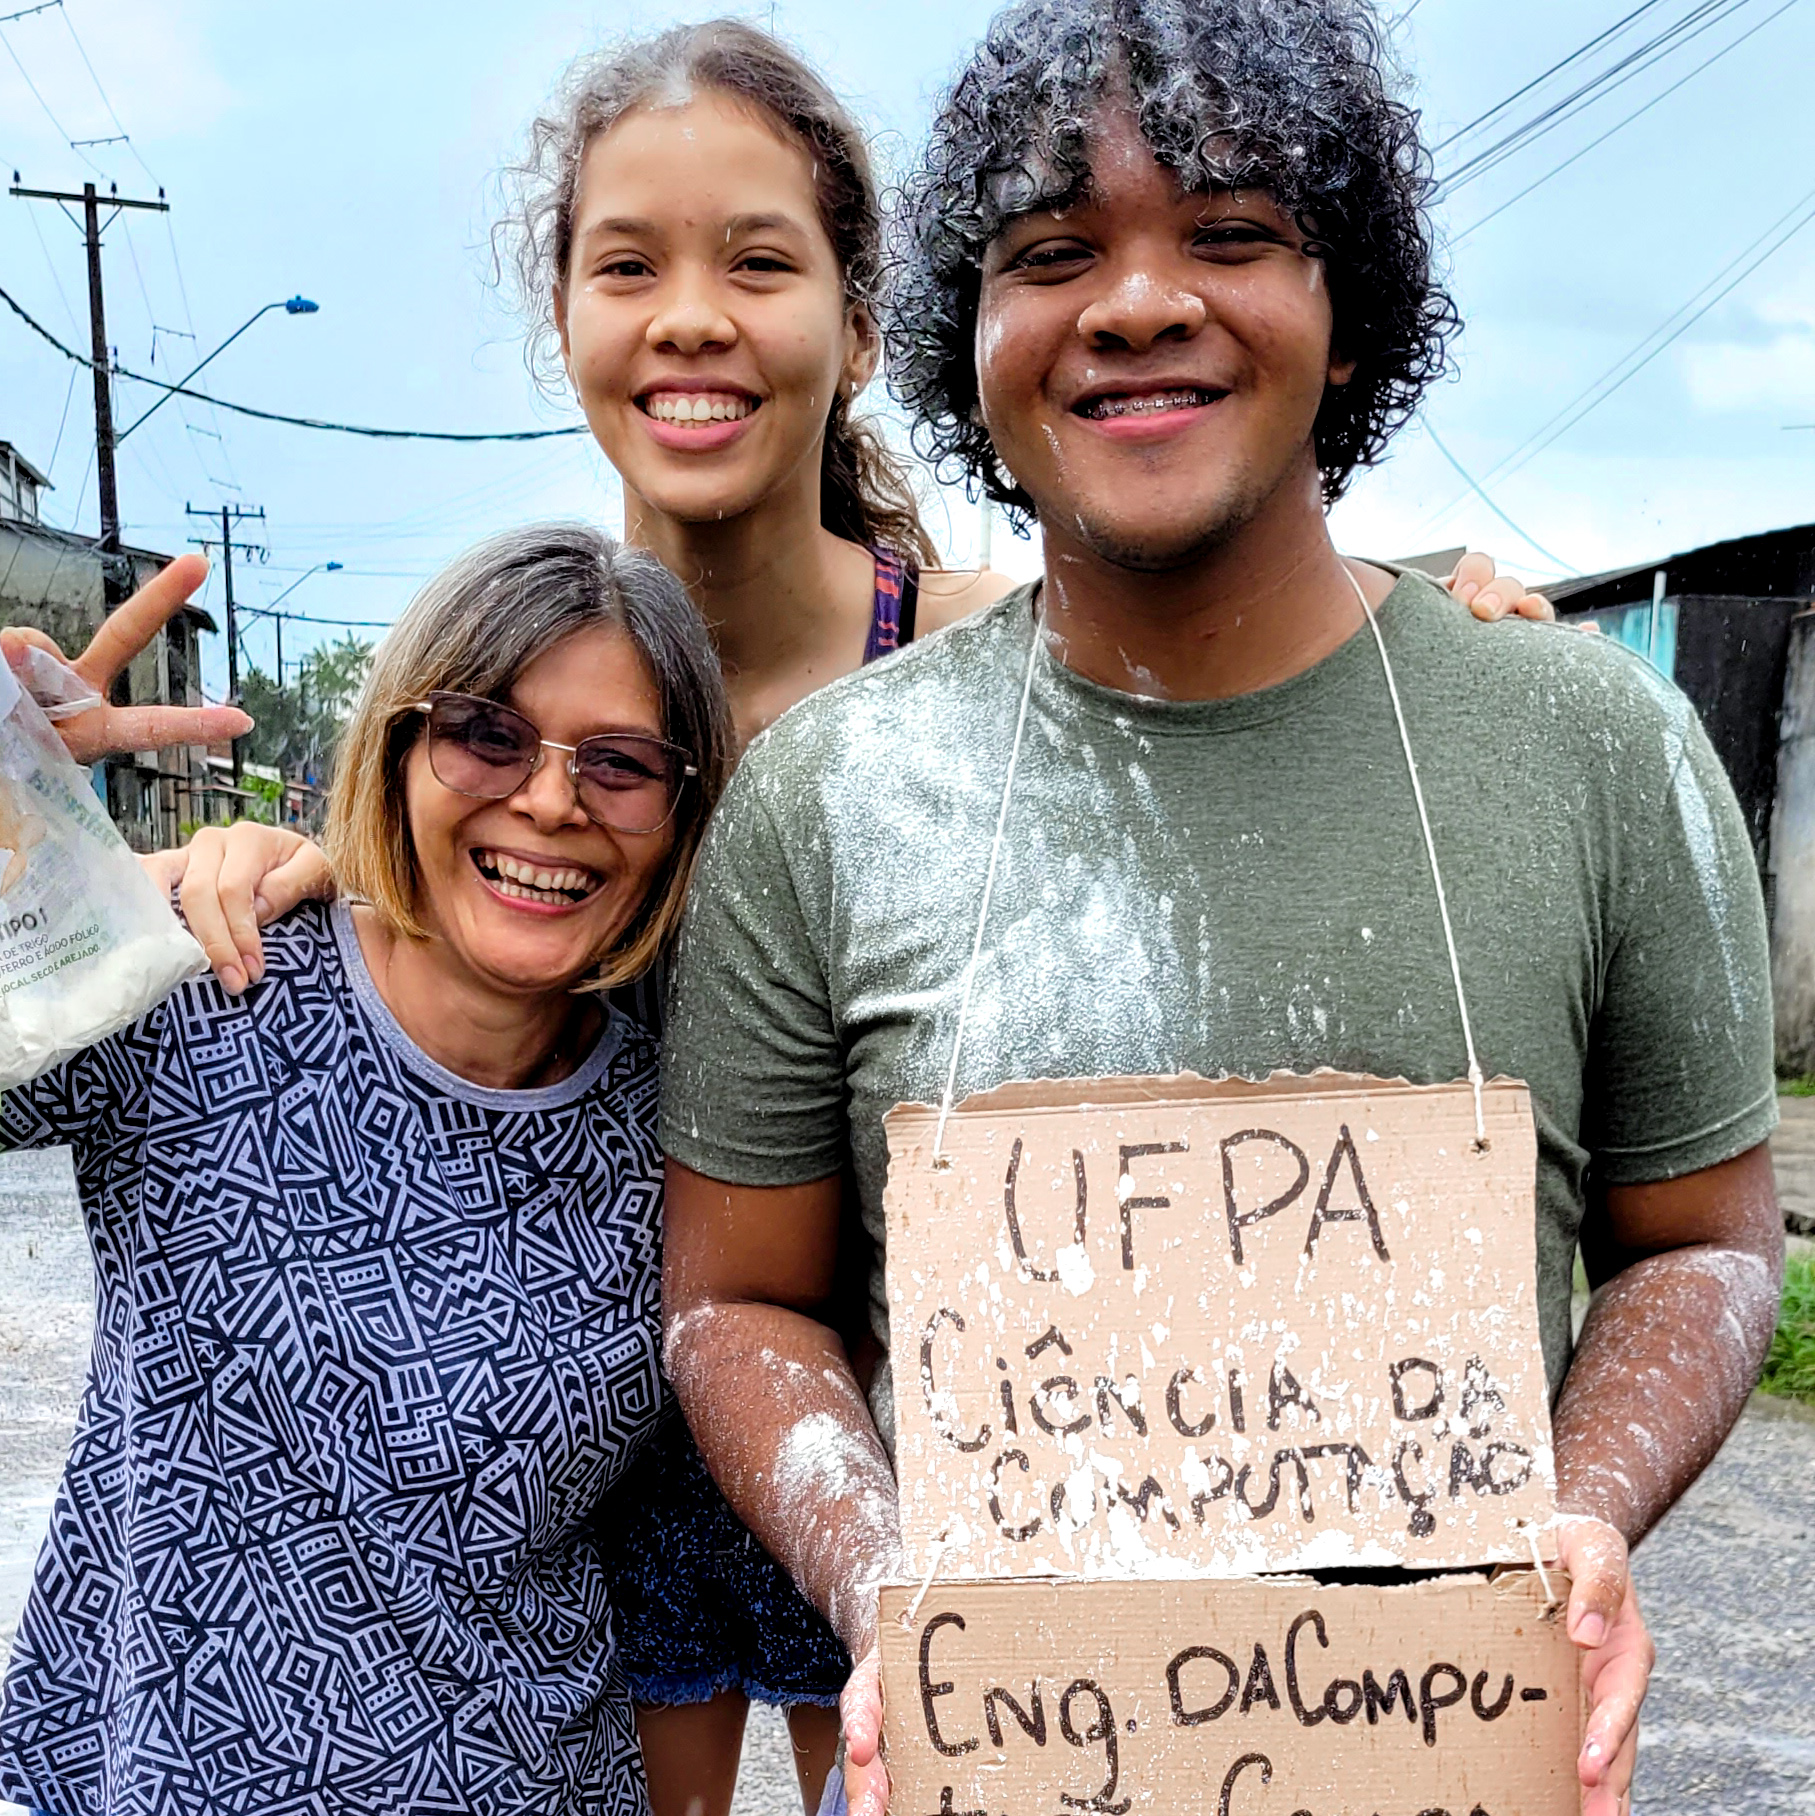 TIPO 1
DE TRIGO
FERRO E ÁCIDO FÓLICO
LOCAL SECO E AREJADO.
UFPA
CIÊNCIA DA
COMPUTAÇÃO
ENG. DA COMPU-